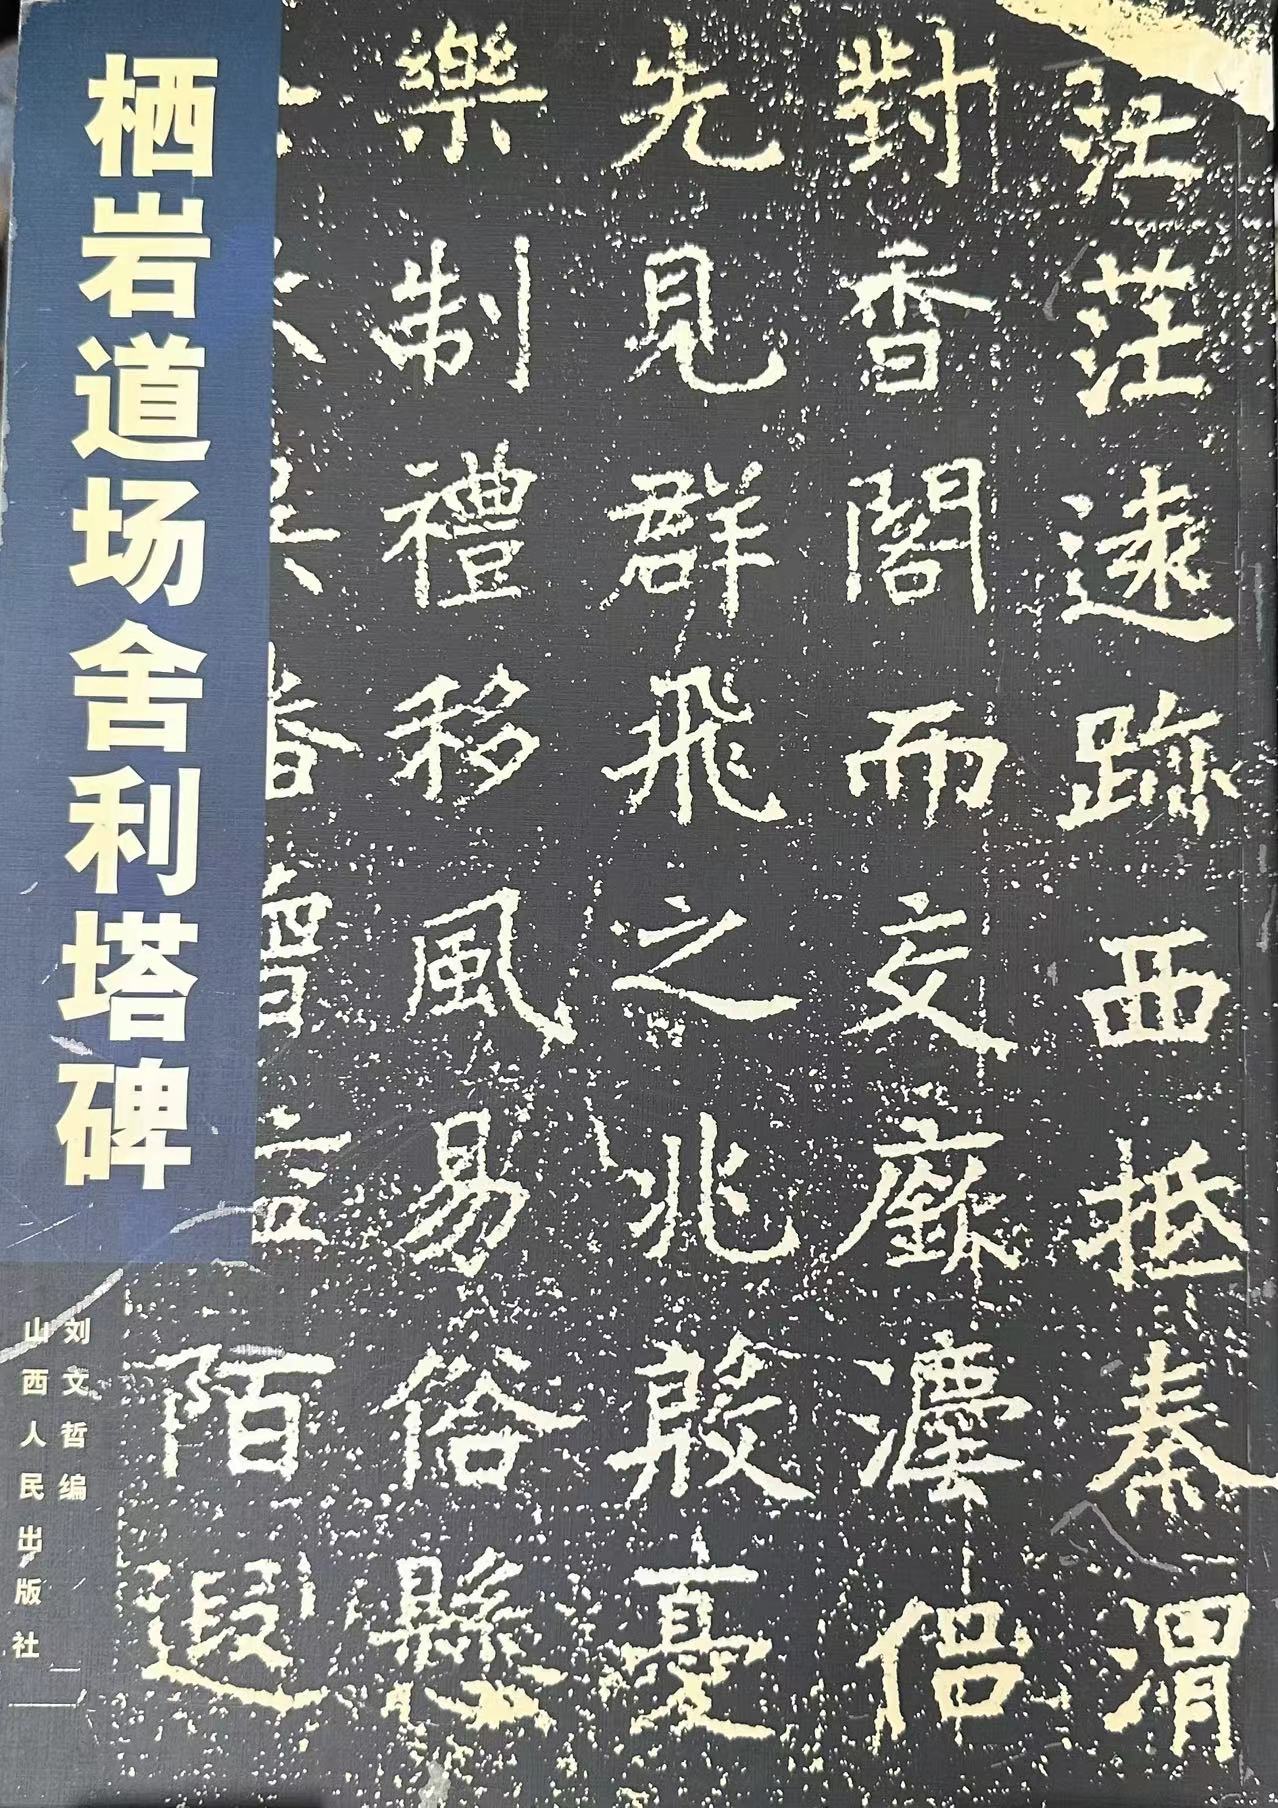 栖岩道场舍利塔碑
刘文哲编
山西人民出版社
茫茫遠跡西抵秦渭
對香閣而交灋侣
先見群飛之兆殷憂
樂制禮移風易俗懸
陌遐